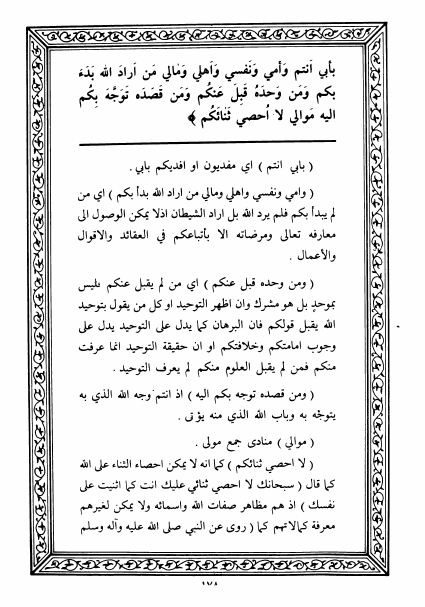 بأبي أنتم وَأمي وَنَفسي وَأهلي وَمَالي مَن أرادَ الله بَدَءَ
بكم وَمَن وَحدَهُ قَبِلَ عَنكُم وَمَن قَصَدَه تَوَجَّهَ بِكُم
اليه مَوالي لا اُحصي ثَنائَكُم ﴾
( بابي انتم ) اي مفديون او افديكم بابي .
( وامي ونفسي واهلي ومالي من اراد الله بدأ بكم ) اي من
لم يبدأ بكم فلم يرد الله بل اراد الشيطان اذلا يمكن الوصول الى
معارفه تعالى ومرضاته الا بأتباعكم في العقائد والاقوال
والأعمال .
( ومن وحده قبل عنكم ) اي من لم يقبل عنكم فليس
بموحدٍ بل هو مشرك وان اظهر التوحيد او كل من يقول بتوحيد
الله يقبل قولكم فان البرهان كما يدل على التوحيد يدل على
وجوب امامتكم وخلافتكم او ان حقيقة التوحيد انما عرفت
منكم فمن لم يقبل العلوم منكم لم يعرف التوحيد .
( ومن قصده توجه بكم اليه ) اذ انتم وجه الله الذي به
يتوجّه به وباب الله الذي منه يؤتى .
( موالي ) منادى جمع مولى .
( لا احصي ثنائكم ) كما انه لا يمكن احصاء الثناء على الله
كما قال ( سبحانك لا احصي ثنائي عليك انت كما اثنيت على
نفسك ) اذ هم مظاهر صفات الله واسمائه ولا يمكن لغيرهم
معرفة كمالاتهم كما ( روى عن النبي صلى الله عليه وآله وسلم
١٧٨